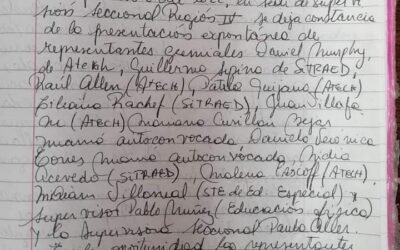 en sede de Supervi
sión Seccional Región IV se deja constancia
de la presentación expontánea de
representantes gremiales Daniel Murphy,
de Atech, Guillermo Spina de SiTRAED,
Raúl Allen (ATECH) Patricia Quijano (ATECH)
Liliana Rachef (SiTRAED),
(ATECH) Mariano
mamá autoconvocada Daniela Verónica
Torres mamá autoconvocada, Nidia
Acevedo (SiTRAED) Malena (ATECH),
Miriam Villarreal (STE de Ed. Especial) y
Supervisor Pablo Núñez (Educación física)
y la Supervisora Seccional Paula Allen.
la oportunidad los representantes